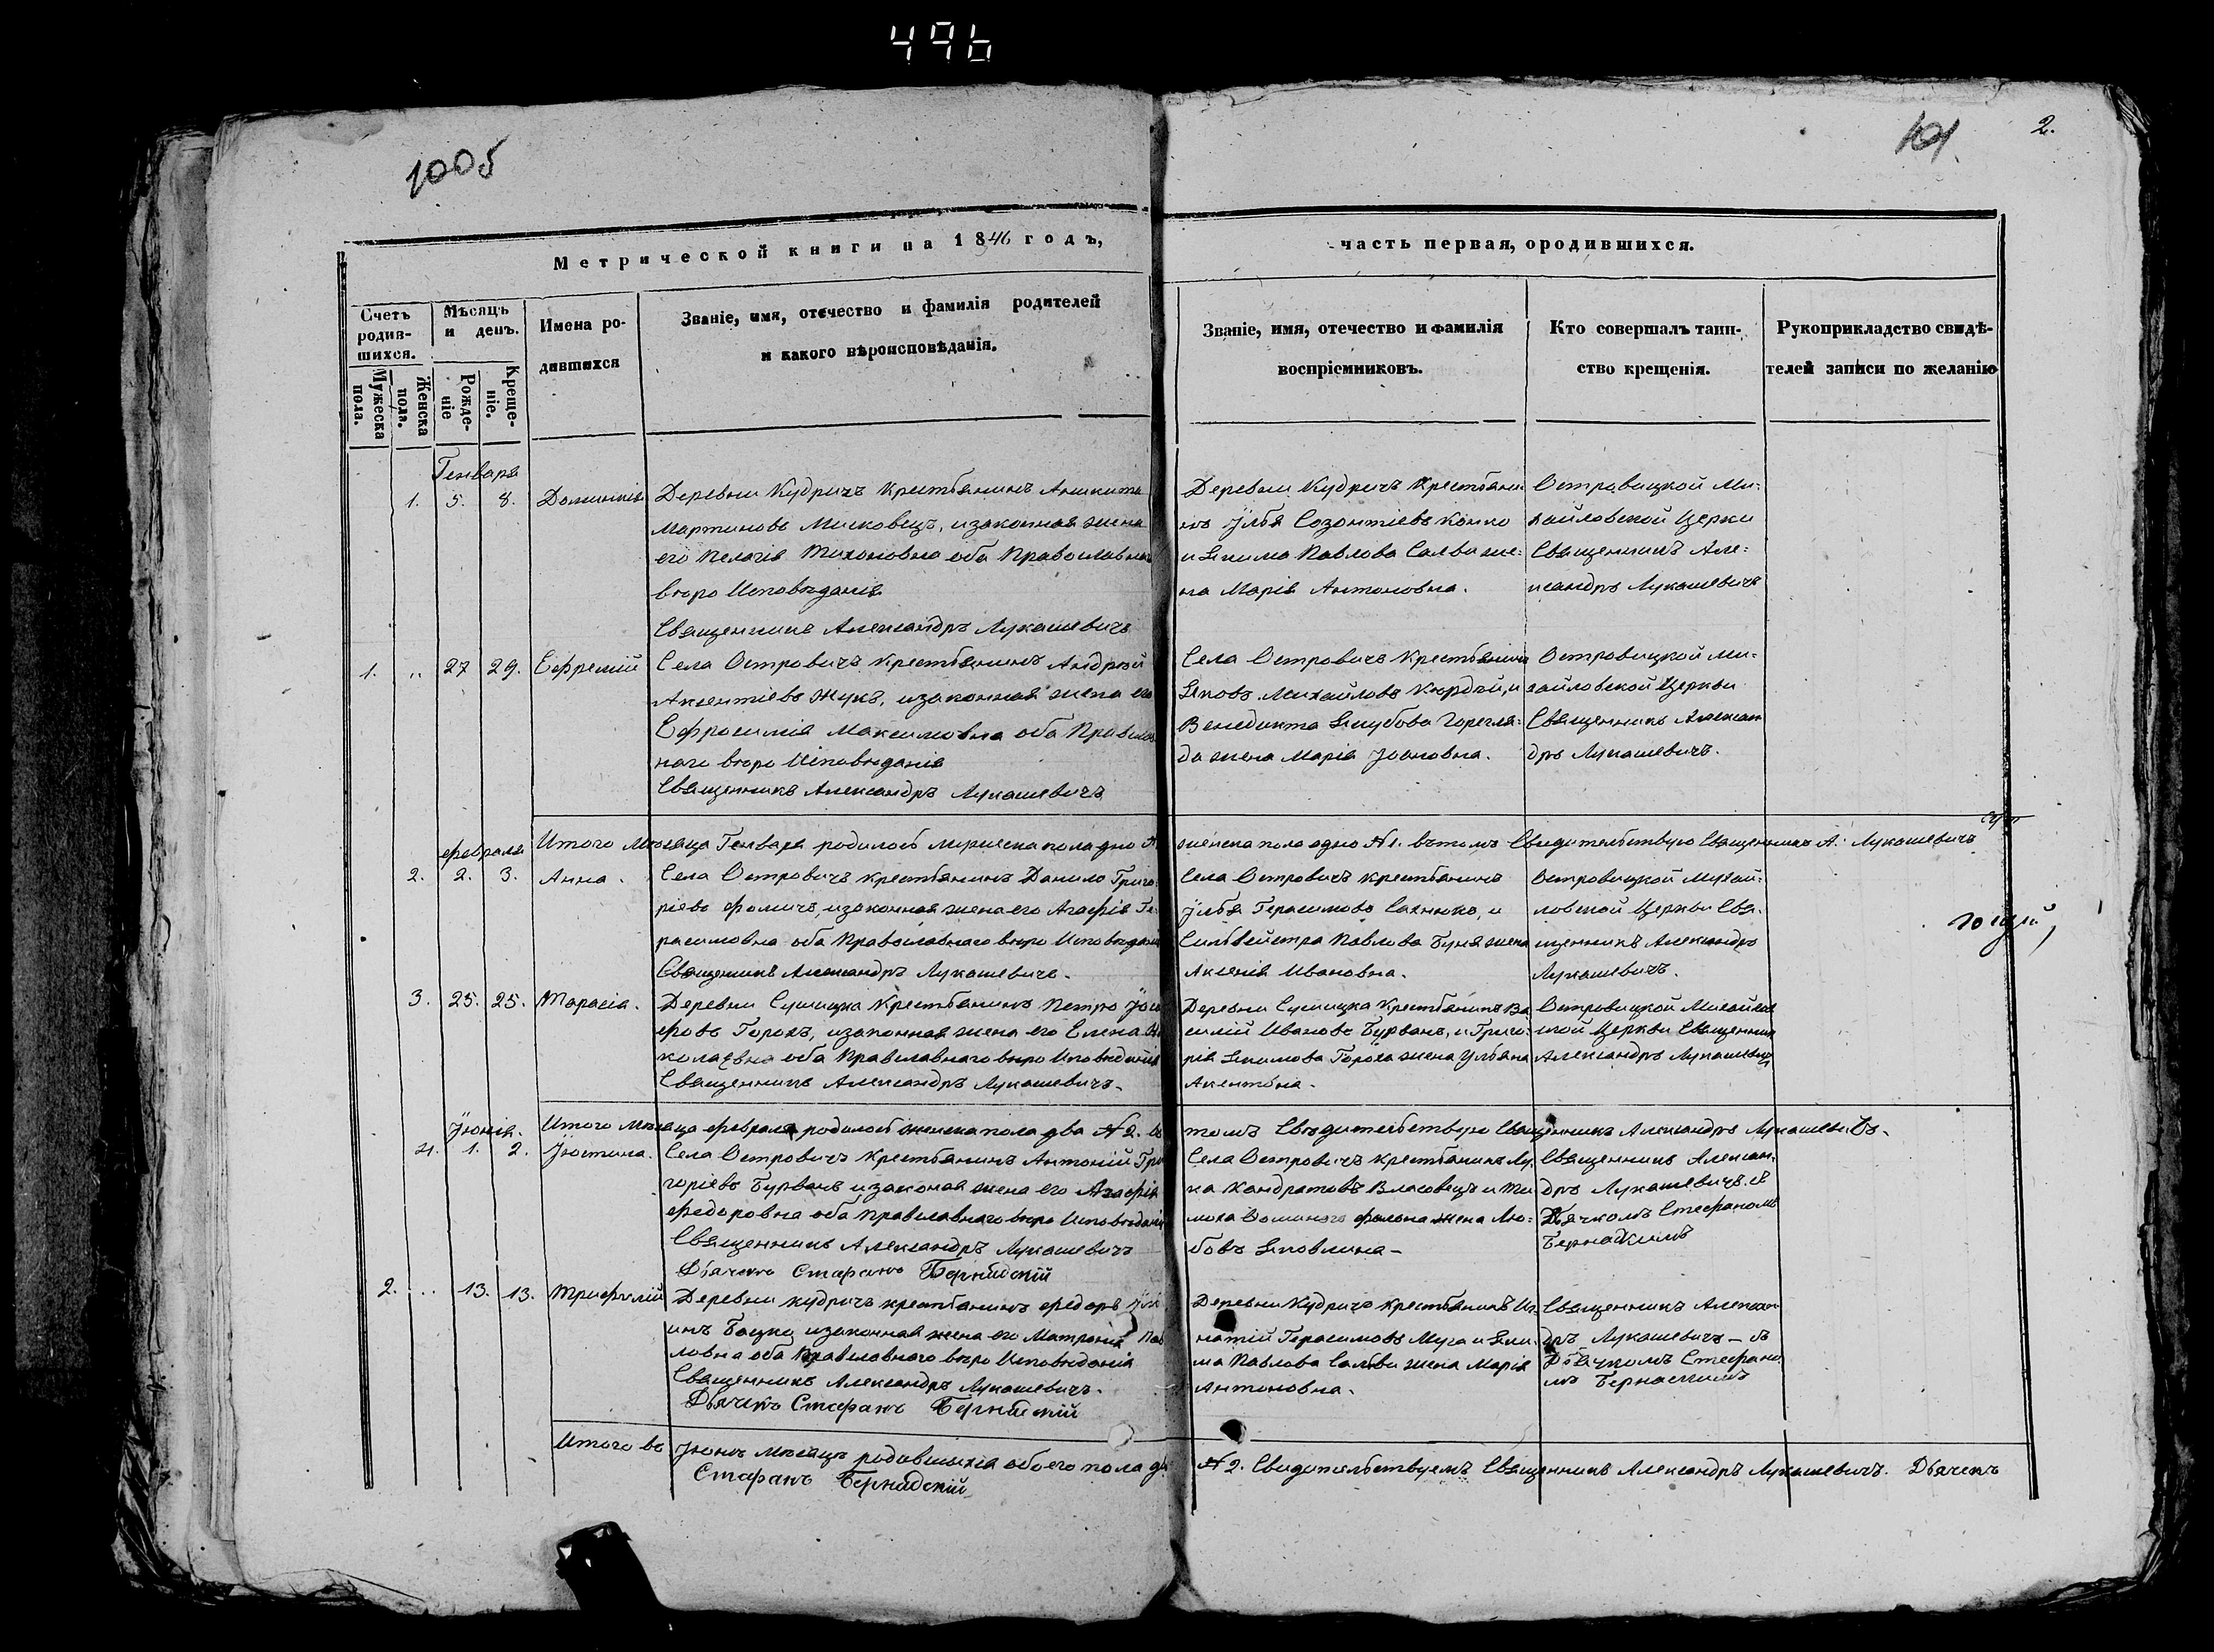 496
100об
101.
2.
Метрической книги на 1846 годъ,
часть первая, о родившихся.
Счетъ родив-шихся.
Мѣсяцъ и день.
Имена ро-дившихся
Званіе, имя, отечество и фамилія родителей
и какого вѣроисповѣданія.
Званіе, имя, отечество и фамилія
воспріемниковъ.
Кто совершалъ таин-
ство крещенія.
Рукоприкладство свидѣ-
телей записи по желанію
Мужеска пола.
Женска пола.
Рожде-ніе
Креще-ніе.
Генваря
1. 5. 8. Доминикія
Деревни Кудричъ Крестьянинъ Аникита
Мартиновъ Мисковецъ, изаконная жена
его Пелагія Тихоновна оба Православна
вѣро Исповѣданія
Священникъ Александръ Лукашевичъ
Деревни Кудричъ Крестьяни-
нъ Ўлья Созонтіевъ Конко
и Якима Павлова Салви же-
на Марія Антоновна.
Островицкой Ми-
хайловской Церки
Священникъ Але-
ксандръ Лукашевичъ
1. .. 27 29. Ефремій
Села Островичъ Крестьянинъ Андрей
Аксентіевъ Жукъ, изаконная жена его
Ефросинія Максимовна оба Правосла
наго вѣро Исповѣданія
Священникъ Александръ Лукашевичъ
Села Островичъ Крестьянинъ
Яковъ Михайловъ Кердей, и
Венедикта Якубова Горегля-
да жена Марія Іоановна.
Островицкой Ми-
хайловской Церкви
Священникъ Алексан
дръ Лукашевичъ.
Итого Мѣсяца Генваря родилось мужеска пола дно №
женска пола одно №1. вътомъ Свидительствую Священникъ А. Лукашевичъ
февраля
2. 2. 3. Анна.
Села Островичъ крестьянинъ Данило Григо
ріевъ Фомичъ, изаконная жена его Агафія Ге-
расимовна оба Православнаго вѣро Исповѣдані
Священникъ Александръ Лукашевичъ.
Села Островичъ крестьянинъ
Ўлья Герасимовъ Сахнюко, и
Сильвейстра Павлова Буня жена
Аксенія Ивановна.
Островицкой Михай-
ловской Церкви Свя-
щенникъ Александръ
Лукашевичъ.
3. 25. 25. Тарасія.
Деревни Сушицка Крестьянинъ Петро Ўоси
фовъ Горохъ, изаконная жена его Елена Ни
колаевна оба Православнаго вѣро Исповѣданія
Священникъ Александръ Лукашевичъ.
Деревни Сушицка Крестьянинъ Ва
силій Ивановъ Бурванъ, и Григо-
рія Якимова Гороха жена Ульяна
Акентьна.
Островицкой Михайлов
ской Церкви Священник
Александръ Лукашевичъ
Итого Мѣсяца февраля родилось женска пола два №2. въ
томъ Свѣдительствую Священникъ Александръ Лукашевичъ.
Ўюнія.
4. 1. 2. Ўюстина.
Села Островичъ Крестьянинъ Антоній Гри
горіевъ Бурванъ изаконая жена его Агафія
Федоровна оба Православнаго вѣро Исповѣданія
Священникъ Александръ Лукашевичъ
Дьячекъ Стефанъ Бернадскій
Села Островичъ крестьянинъ Лу-
ка Кандратовъ Власовецъ и Ти
жена Лю-
бовъ Яковлина-
Священникъ Алексан-
дръ Лукашевичъ. съ
Дьячкомъ Стефаномъ
Бернадскимъ
2. .. 13. 13. Трифилій
Деревни кудричъ крестьянинъ Федоръ Ўль
инъ Бацко изаконная жена его Матрона Пав
ловна оба Православного вѣро Исповѣданія
Священникъ Александръ Лукашевичъ.
Дьячекъ Стефанъ Бернадскій
Деревни Кудричъ Крестьянинъ Иг-
натій Герасимовъ Муха и Яки-
ма Павлова Салви жена Марія
Антоновна.
Священникъ Алексан
дръ Лукашевичъ - съ
Дьячкомъ Стефано
мъ Бернаскимъ
Итого въ Ўюнѣ мѣсяцѣ родившихся обоего пола дв
№2. Свидительствуемъ Священникъ Александръ Лукашевичъ. Дьячекъ
Стефанъ Бернадскій